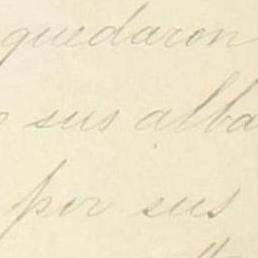 quedaron
sus alba
por sus